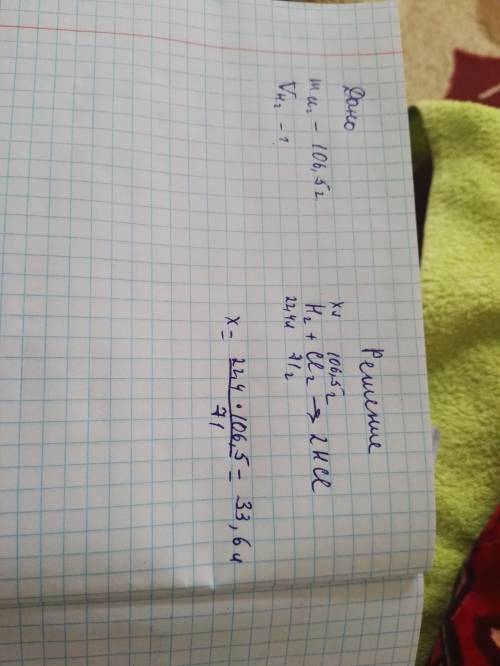 Дано
mCl₂ - 106,5г
VH₂ - ?
Решение
xл 106,5г
H₂ + Cl₂ → 2HCl
22,4л 71г
x = 22,4 · 106,5 = 33,6л
71